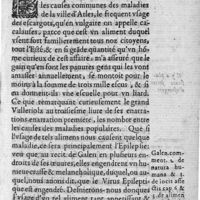 les causes communes des maladies
de la ville d'Arles, le frequent vsage
des escargots, qu'en vulgaire on appelle ca-
calauses, parce que c'est vn aliment duquel
vsent fort familierement tous nos citoyens,
tout l'Esté, & en si grãde quantité qu'vn hõ-
me curieux de cest affaire, m'a asseuré que le
gain qu'en font les pauures gens qui les vont
amasser annuellement, se montoit pour le
moins à la somme de trois mille escus, & si
on donne vne escuelle pour vn liard.
Ce que remarquant curieusement le grand
Valleriola au troisiesme liure de ses enarra-
tions enarration premiere, les nombre entre
les causes des maladies populaires. Que si
l'vsage de tels aliments nous causent quelque
maladie, ce sera principalement l'Epilepsie
veu que au recit de Galen en plusieurs en-
droits de ses œuures, elles engendrent vn hu-
meur crasse & melancholique, duquel, ou au-
quel, nous disons que le Virus Epilepti-
que est engendré. Desistons-nous doncques
à vsage d'vn tel aliment tant appetissant &
Galen. com-
ment. 2. de
natura hu-
mana &
de locis affe-
ctis cap. 6 &
de aliment